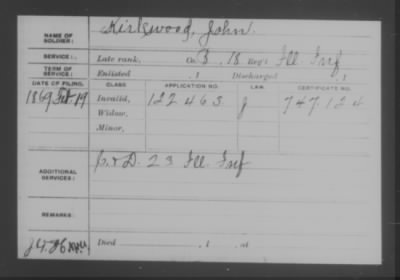 NAME OF SOLDIER: Kirkwood, John.
SERVICE: Late rank, Co. B, 18 Reg't Ill Inf
TERM OF SERVICE: Enlisted , 1 Discharged , 1
DATE OF FILING. CLASS. APPLICATION NO. LAW. CERTIFICATE NO.
1869 Feb. 19 Invalid, 122 463 J 747,124
Widow,
Minor,
ADDITIONAL SERVICES: G. & D. 23 Ill Inf
REMARKS:
Died , 1 , at